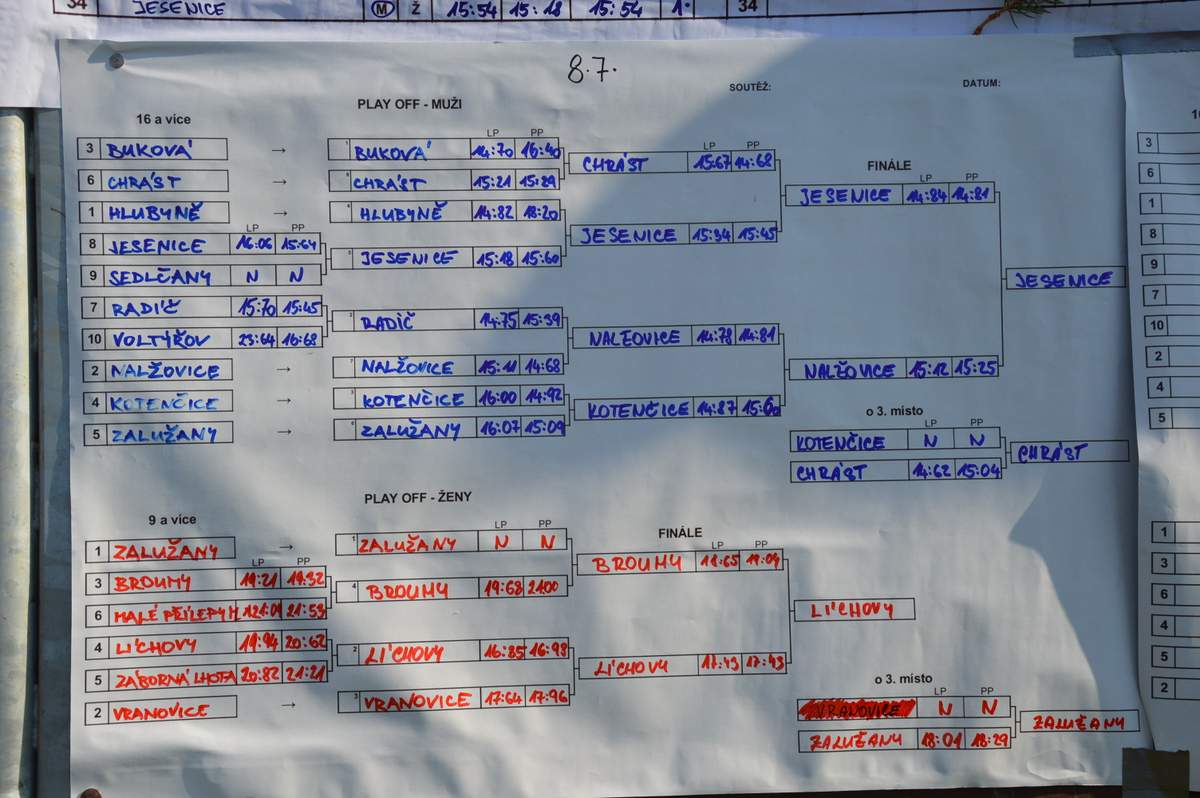 34 JESENICE M Ž 15:54 15:18 15:54 1. 34
8.7.
SOUTĚŽ: DATUM:
PLAY OFF - MUŽI
16 a více
3 BUKOVÁ →
6 CHRÁST →
1 HLUBYNĚ →
LP PP
8 JESENICE 16:06 15:64
9 SEDLČANY N N
7 RADÍČ 15:70 15:45
10 VOLTÝŘOV 23:64 16:68
2 NALŽOVICE →
4 KOTENČICE →
5 ZALUŽANY →
LP PP
BUKOVÁ 14:70 16:40
CHRÁST 15:21 15:29
HLUBYNĚ 14:82 18:20
JESENICE 15:18 15:60
RADÍČ 14:75 15:39
NALŽOVICE 15:11 14:68
KOTENČICE 16:00 14:92
ZALUŽANY 16:07 15:09
LP PP
CHRÁST 15:67 14:62
JESENICE 15:34 15:45
NALŽOVICE 14:78 14:81
KOTENČICE 14:87 15:60
FINÁLE
LP PP
JESENICE 14:84 14:81
NALŽOVICE 15:12 15:25
JESENICE
o 3. místo
LP PP
KOTENČICE N N
CHRÁST 14:62 15:04
CHRÁST
PLAY OFF - ŽENY
9 a více
1 ZALUŽANY →
LP PP
3 BROUMY 19:21 19:32
6 MALÉ PŘÍLEPY 21:53
4 LÍCHOVY 19:94 20:62
5 ZÁBORNÁ LHOTA 20:82 21:21
2 VRANOVICE →
LP PP
1 ZALUŽANY N N
4 BROUMY 19:68 21:00
2 LÍCHOVY 16:85 16:98
3 VRANOVICE 17:64 17:96
FINÁLE
LP PP
BROUMY
LÍCHOVY 17:43 17:43
LÍCHOVY
o 3. místo
LP PP
VRANOVICE N N
ZALUŽANY 18:01 18:29
ZALUŽANY
3
6
1
8
9
7
10
2
4
5
1
3
6
4
5
2